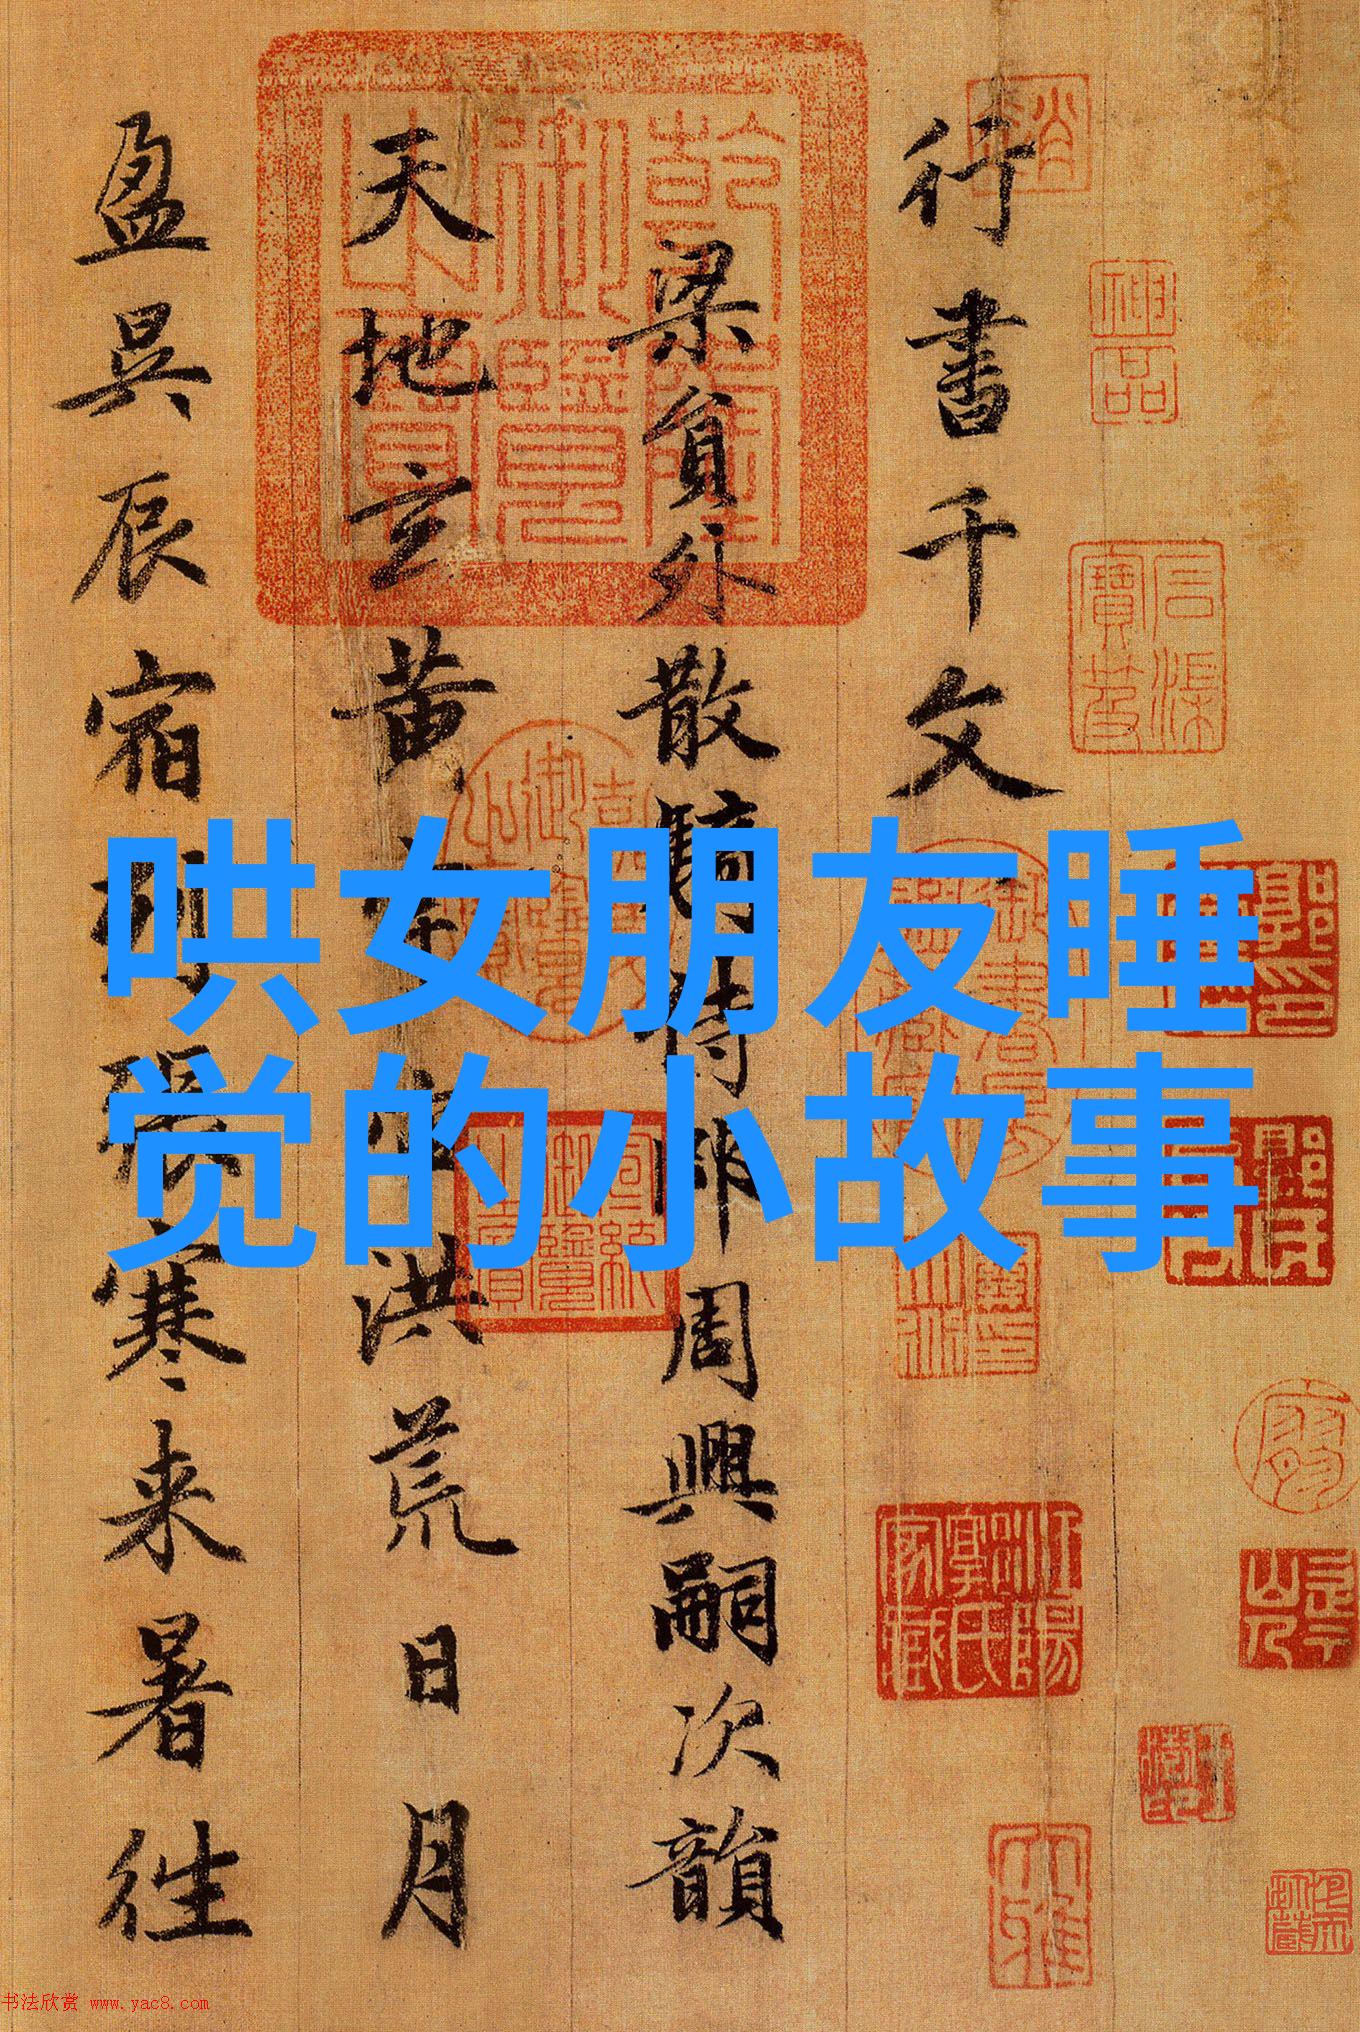 哄女朋友睡
觉的小故事
行書千文
梁員外散騎侍郎周興嗣次韻
天地玄黄宇宙洪荒日月
盈昃辰宿列張寒来暑往
神品
乾隆御覽之寶
書法欣赏 www.yac8.com